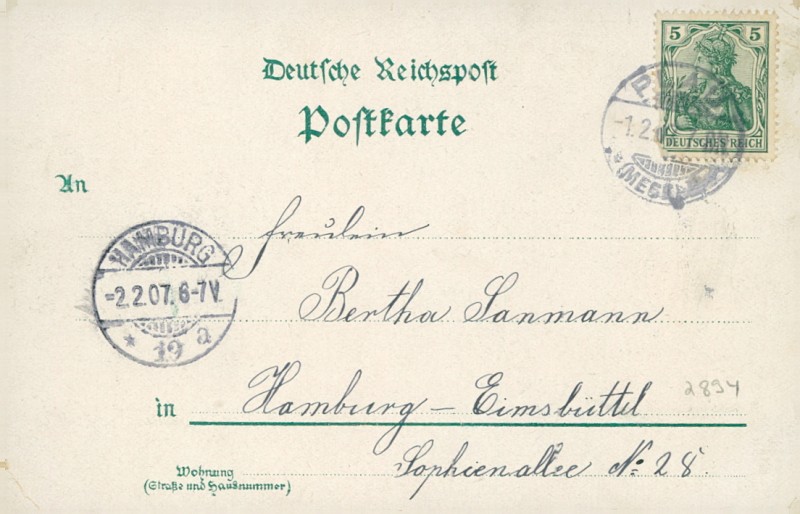 5 5
Deutsche Reichspost
Postkarte
DEUTSCHES REICH
-1.2.
An
Fräulein
HAMBURG
-2.2.07. 6-7V.
* 19 a
Bertha Sanmann
2894
in Hamburg - Eimsbüttel
Sophienallee No. 28.
Wohnung
(Straße und Hausnummer)